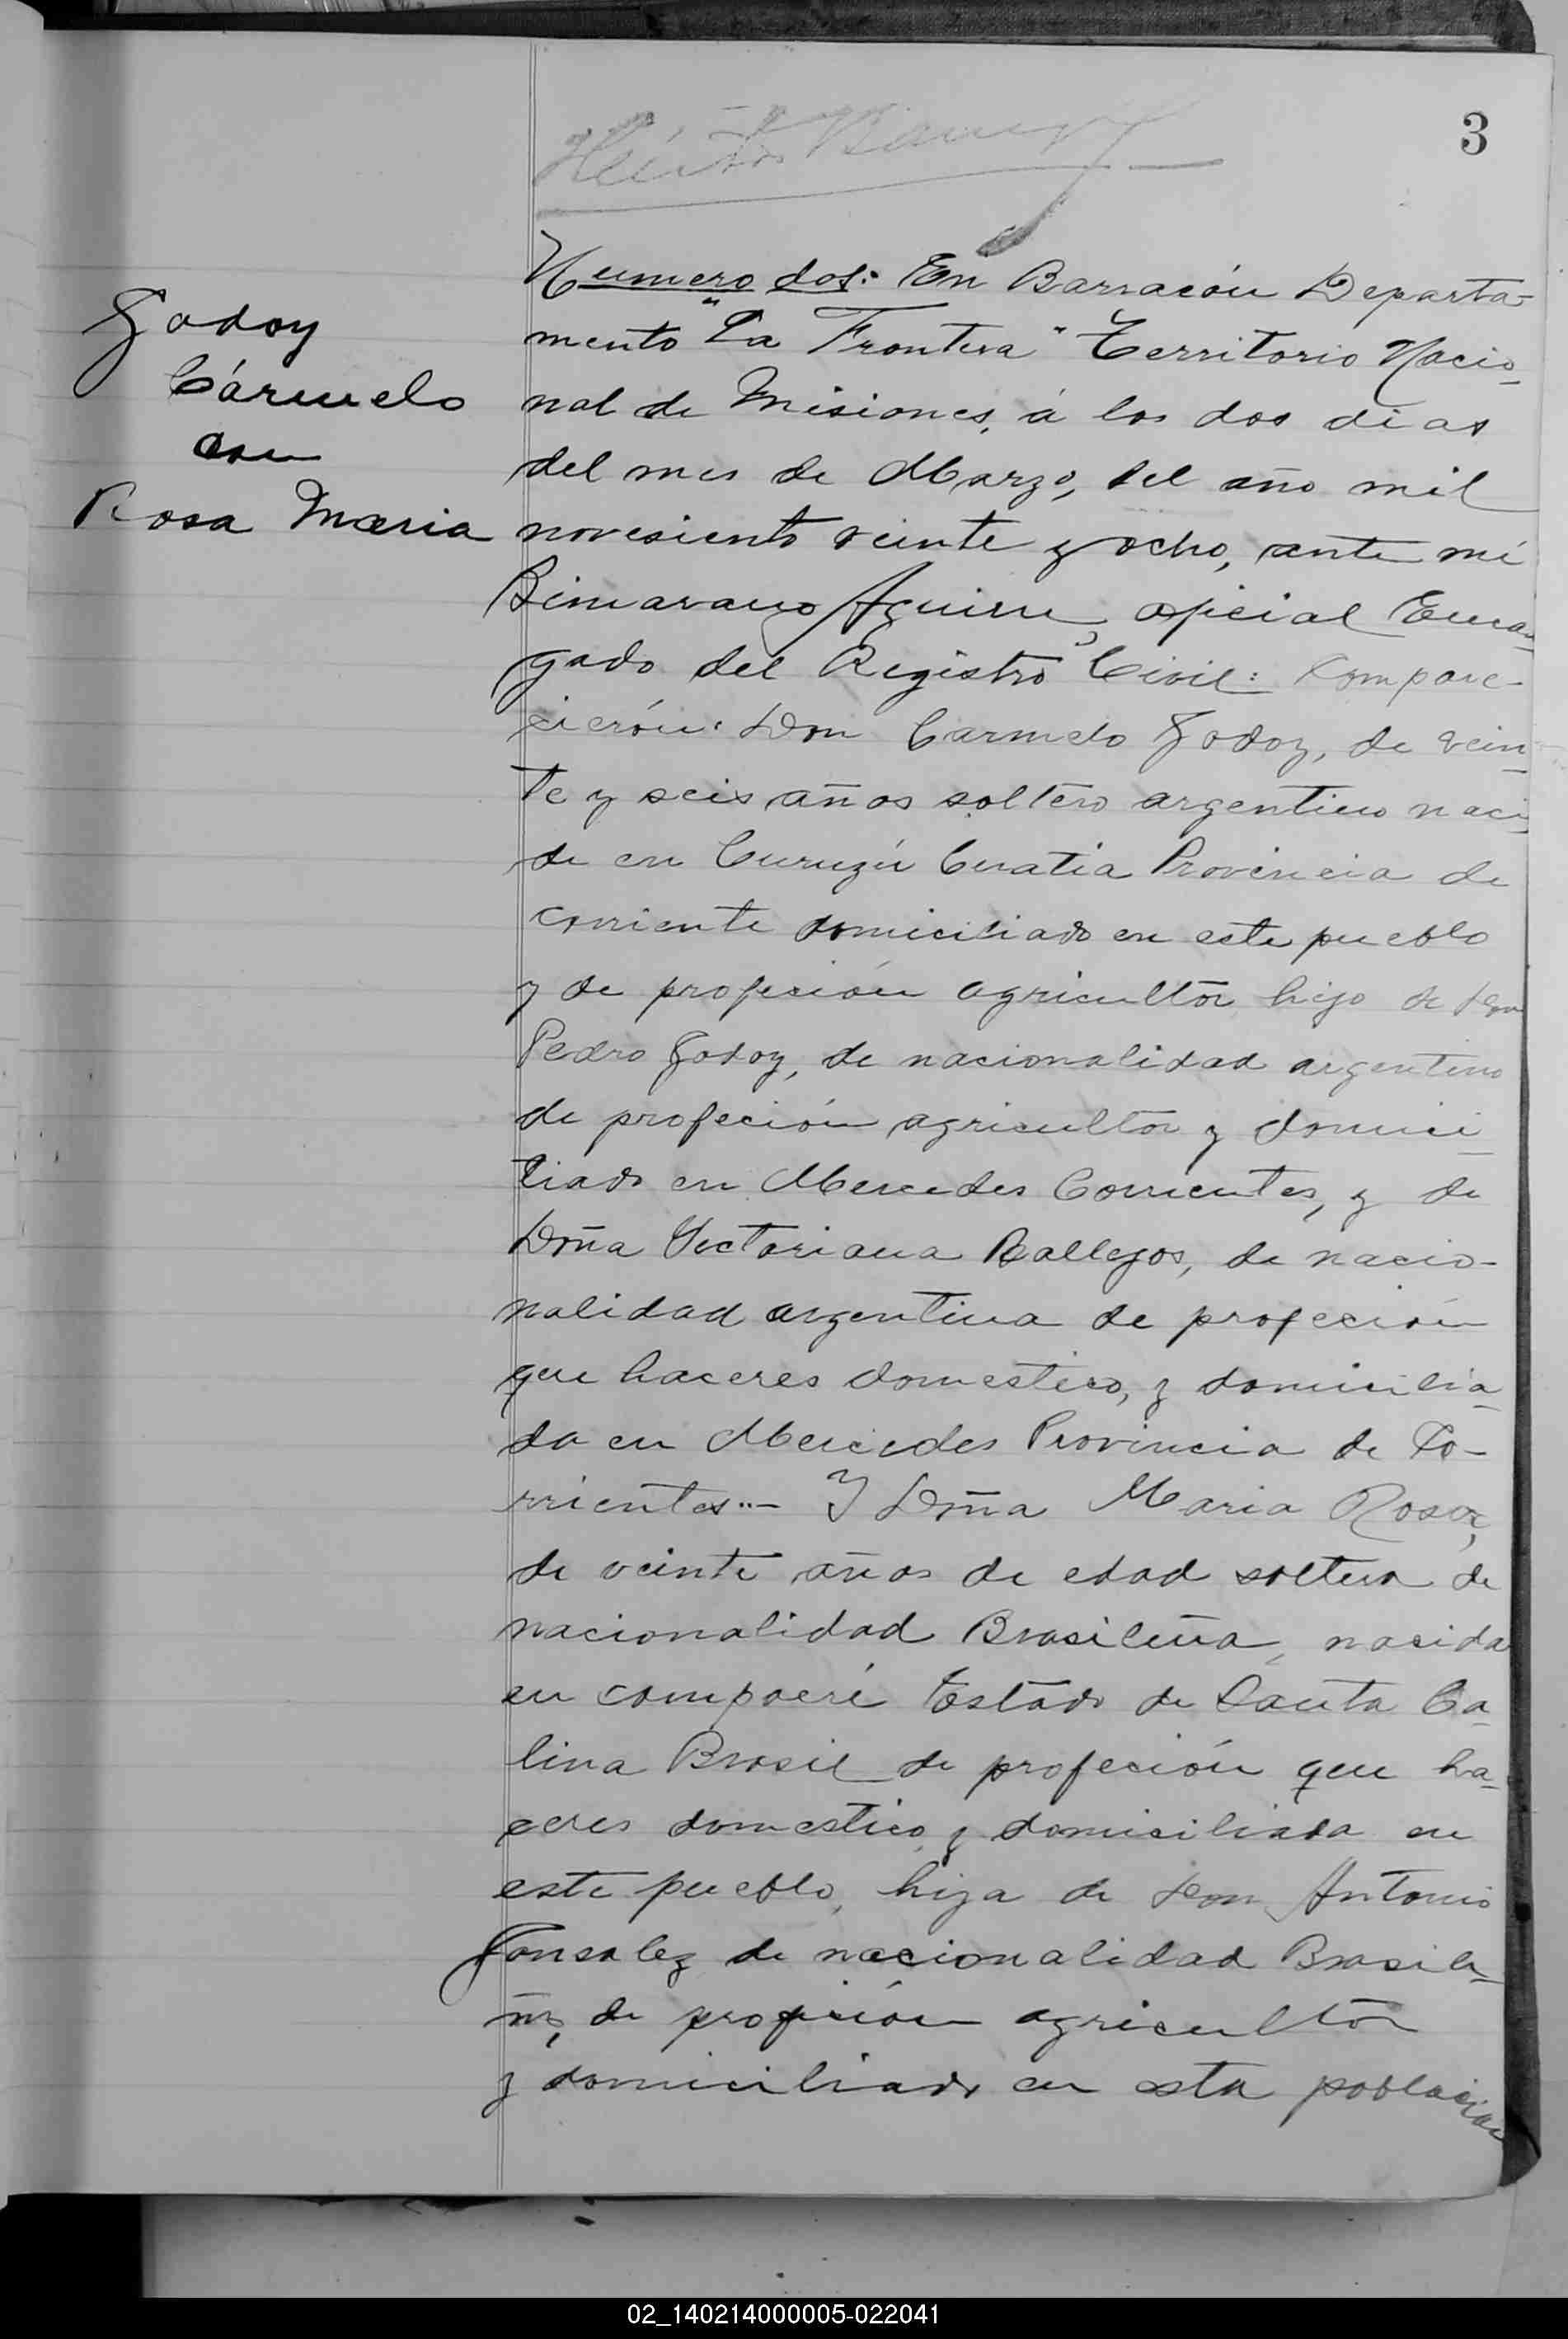 3
Numero dos: En Barracón Departa-
mento "La Frontera" Territorio Nacio-
nal de Misiones, á los dos dias
del mes de Marzo, del año mil
novesiento veinte y ocho, ante mi
Aguirre, oficial Encar-
gado del Registro Civil: Compare-
cierón: Don Carmelo Godoy, de vein-
te y seis años soltero argentino naci-
do en Curuzú Cuatia Provincia de
Corriente domiciliado en este pueblo
y de profeción agricultor hijo de Don
Pedro Godoy, de nacionalidad argentino
de profeción agricultor y domici-
liado en Mercedes Corrientes, y de
Doña Victoriana Ballejos, de nacio-
nalidad argentina de profeción
que haceres domestico, y domicilia-
da en Mercedes Provincia de Co-
rrientes.- Y Doña Maria Rosa,
de veinte años de edad soltera de
nacionalidad Brasileña, nacida
en Estado de Santa Ca-
lina Brasil de profeción que ha-
ceres domestico, y domiciliada en
este pueblo, hija de Don Antonio
Gonsalez de nacionalidad Brasile-
ño, de profeción agricultor
y domiciliado en esta poblacion
Godoy
Cármelo
con
Rosa Maria
02_140214000005-022041